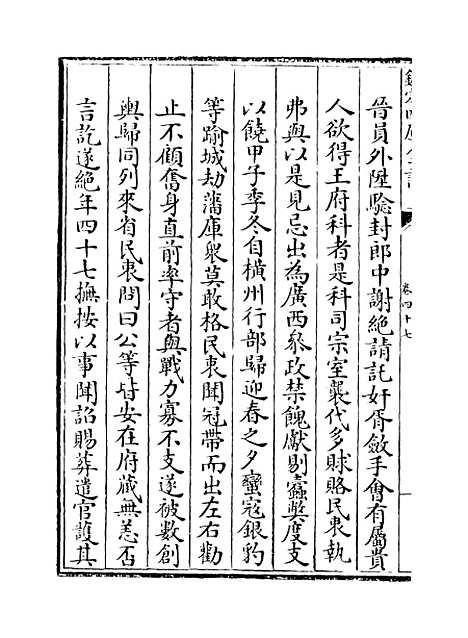 欽定四庫全書
卷四十七
晉員外陞驗封郎中謝絶請託奸胥斂手會有屬貴
人欲得王府科者是科司宗室襲代多賕賂民衷執
弗與以是見忌出為廣西叅政禁餽獻剔蠧獘度支
以饒甲子季冬自橫州行部歸迎春之夕蠻寇銀豹
等踰城劫藩庫衆莫敢格民衷聞冠帶而出左右勸
止不顧奮身直前率守者與戰力寡不支遂被數創
輿歸同列來省民衷問曰公等皆安在府藏無恙否
言訖遂絶年四十七撫按以事聞詔賜葬遣官護其